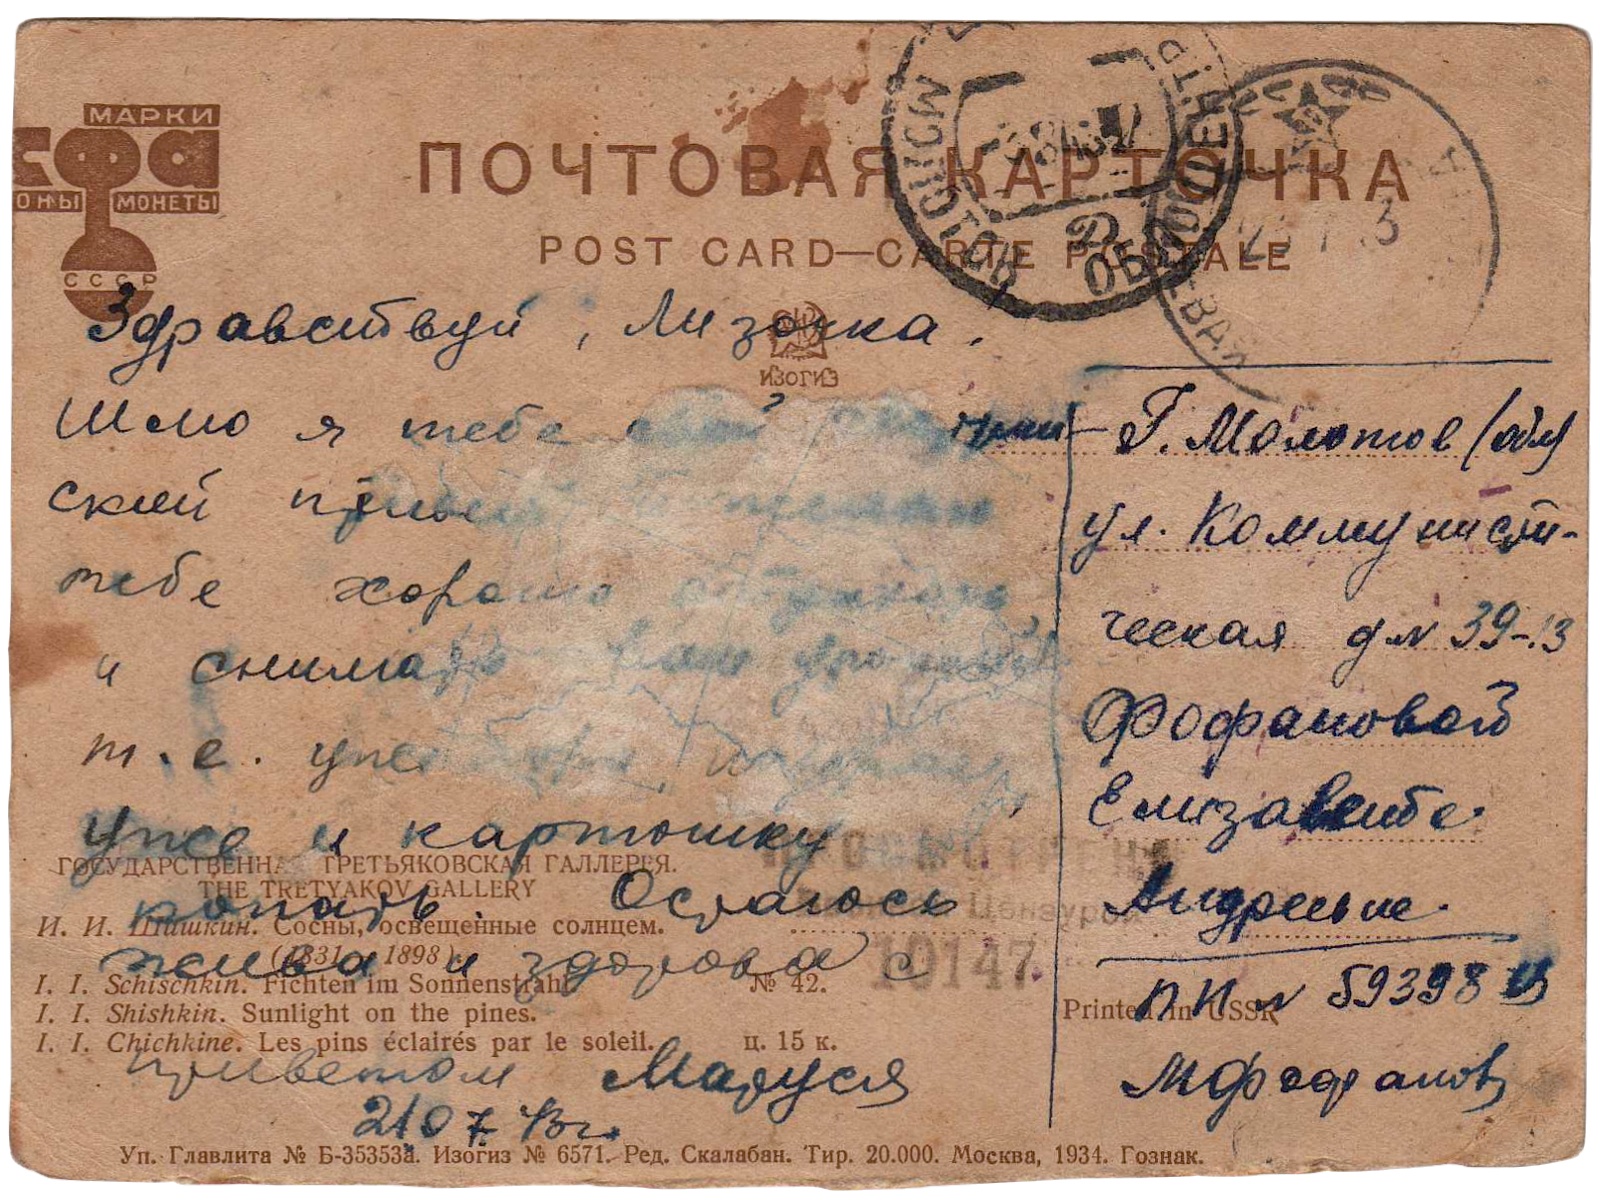 МАРКИ
МОНЕТЫ
СССР
ПОЧТОВАЯ КАРТОЧКА
POST CARD—CARTE POSTALE
МОЛОТОВ
ОБЛ
Здравствуй, Лизочка.
ИЗОГИЗ
Шлю я тебе свой
ский
тебе хорошо
и снимать
т. е.
уже и картошку
копать. Остаюсь
жива и здорова с
приветом Маруся
21 07 43 г.
Г. Молотов (обл)
ул. Коммунисти-
ческая д № 39-13
Фофановой
Елизавете
Андреевне.
ПП № 59398
МФофанова
ПРОСМОТРЕНО
Цензурой
10147
ГОСУДАРСТВЕННАЯ ТРЕТЬЯКОВСКАЯ ГАЛЛЕРЕЯ.
THE TRETYAKOV GALLERY
И. И. Шишкин. Сосны, освещенные солнцем.
(1831—1898)
I. I. Schischkin. Fichten im Sonnenstrahl. № 42.
I. I. Shishkin. Sunlight on the pines.
I. I. Chichkine. Les pins éclairés par le soleil. ц. 15 к.
Printed in USSR
Уп. Главлита № Б-35353а. Изогиз № 6571. Ред. Скалабан. Тир. 20.000. Москва, 1934. Гознак.